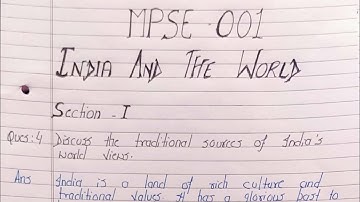 MPSE 001
INDIA AND THE WORLD
Section - I
Ques:4 Discuss the traditional sources of India's
world views.
Ans India is a land of rich culture and
traditional values. It has a glorious past to